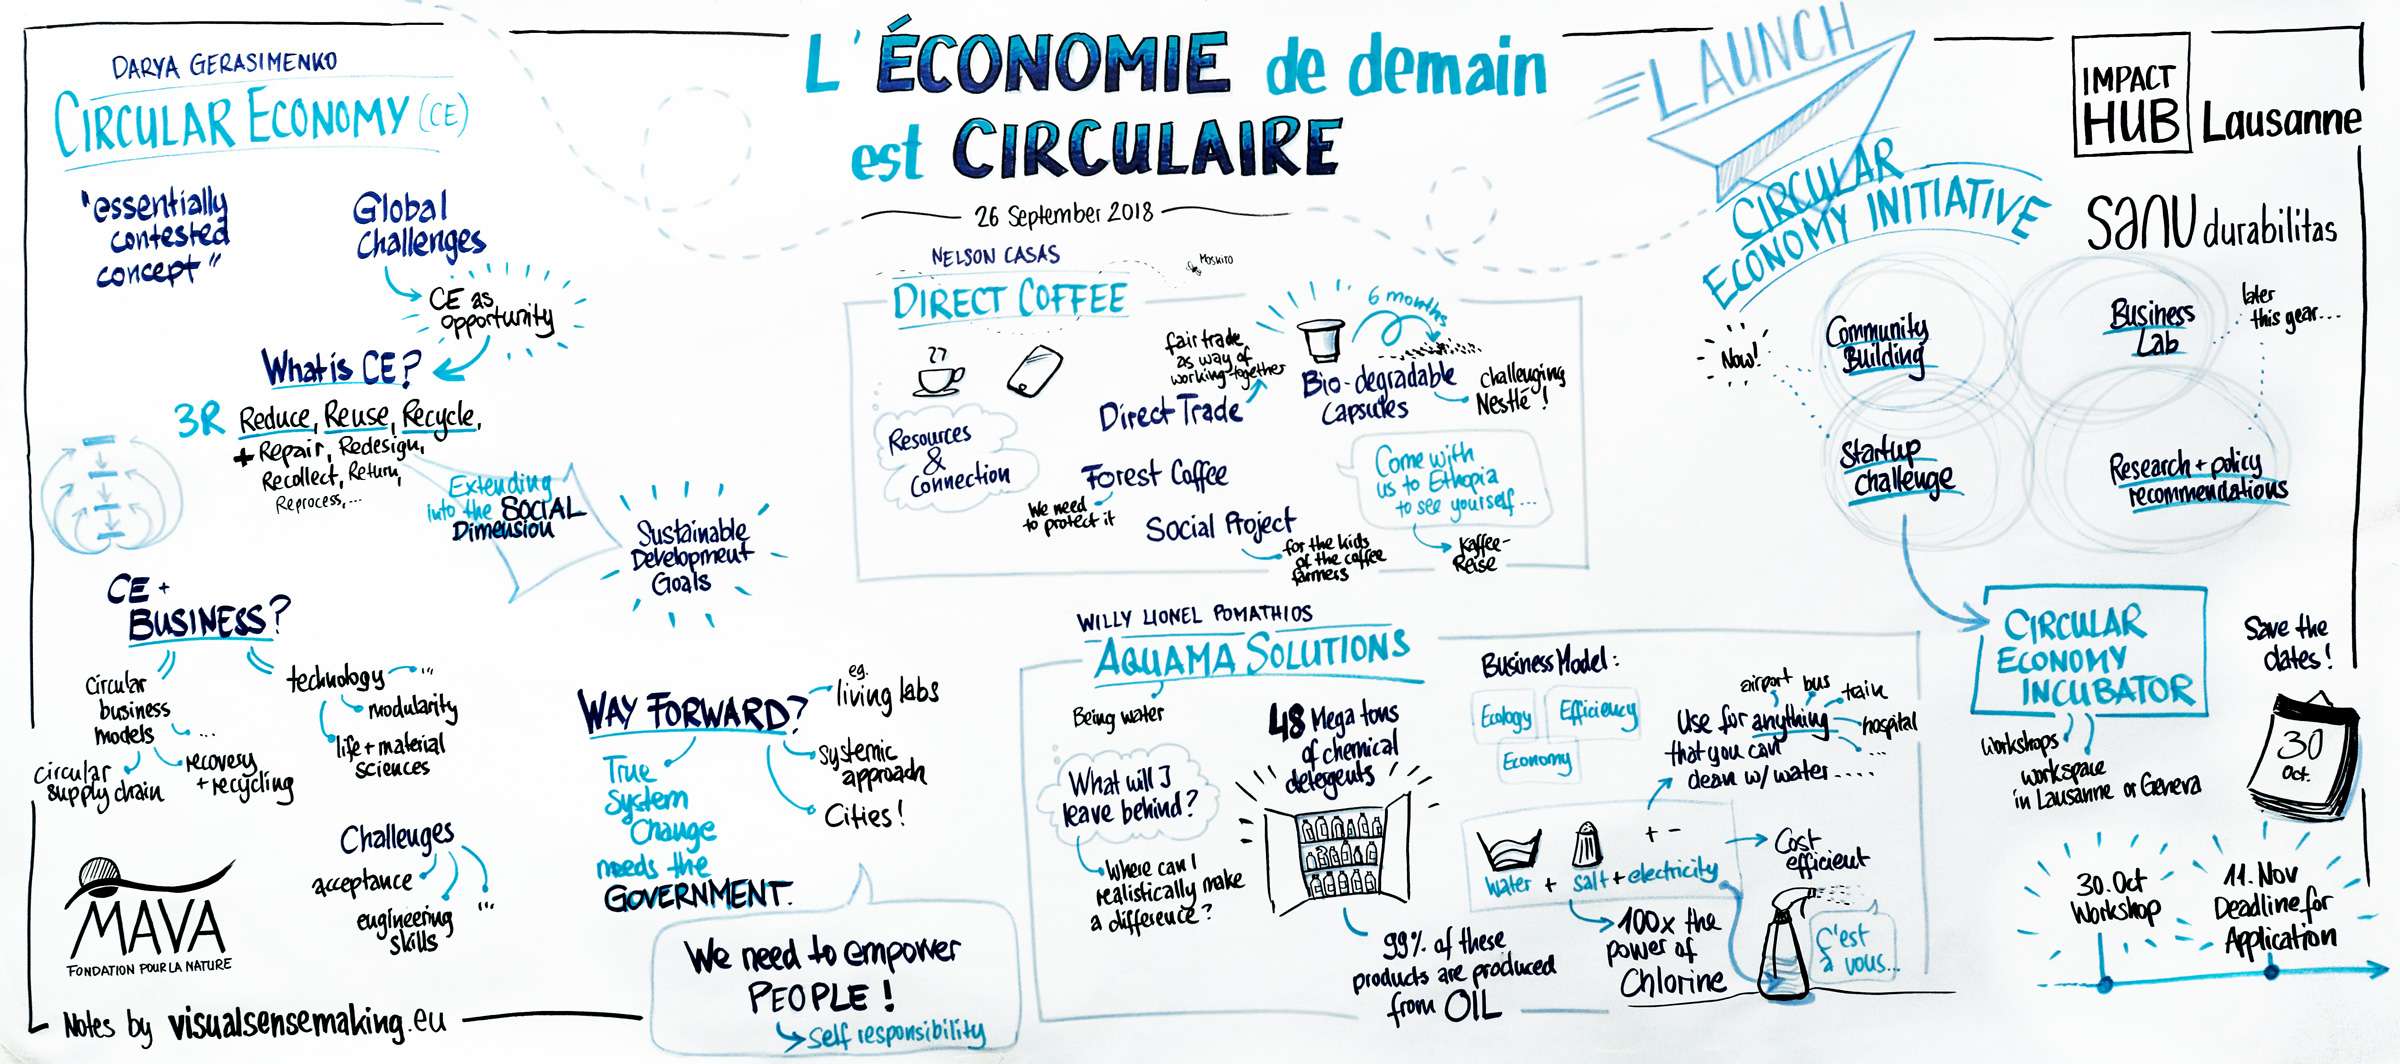 L'ÉCONOMIE de demain
est CIRCULAIRE
26 September 2018
DARYA GERASIMENKO
CIRCULAR ECONOMY (CE)
"essentially
contested
concept"
Global
Challenges
CE as
opportunity
What is CE?
3R Reduce, Reuse, Recycle,
+ Repair, Redesign,
Recollect, Return,
Reprocess,...
Extending
into the SOCIAL
Dimension
Sustainable
Development
Goals
CE +
BUSINESS?
circular
business
models
...
circular
supply chain
recovery
+ recycling
technology
...
modularity
life + material
sciences
Challenges
acceptance
engineering
skills
...
WAY FORWARD?
eg.
living labs
systemic
approach
Cities!
True
System
Change
needs the
GOVERNMENT.
We need to empower
PEOPLE!
self responsibility
MAVA
FONDATION POUR LA NATURE
Notes by visualsensemaking.eu
NELSON CASAS
Moskito
DIRECT COFFEE
Resources
&
Connection
fair trade
as way of
working together
Direct Trade
6 months
Bio-degradable
Capsules
challenging
Nestlé!
Forest Coffee
We need
to protect it
Social Project
for the kids
of the coffee
farmers
Come with
us to Ethopia
to see yourself...
Kaffee-
Reise
WILLY LIONEL POMATHIOS
AQUAMA SOLUTIONS
Being water
What will I
leave behind?
Where can I
realistically make
a difference?
48 Mega tons
of chemical
detergents
99% of these
products are produced
from OIL
Business Model:
Ecology
Efficiency
Economy
airport
bus
train
hospital
...
Use for anything
that you can
clean w/ water....
+ -
water + salt + electricity
Cost
efficient
100x the
power of
Chlorine
C'est
à vous...
LAUNCH
CIRCULAR
ECONOMY INITIATIVE
IMPACT
HUB Lausanne
sanu durabilitas
Now!
Community
Building
Business
Lab
later
this year...
Startup
challenge
Research + policy
recommendations
CIRCULAR
ECONOMY
INCUBATOR
workshops
workspace
in Lausanne or Geneva
Save the
dates!
30
Oct.
30. Oct
Workshop
11. Nov
Deadline for
Application